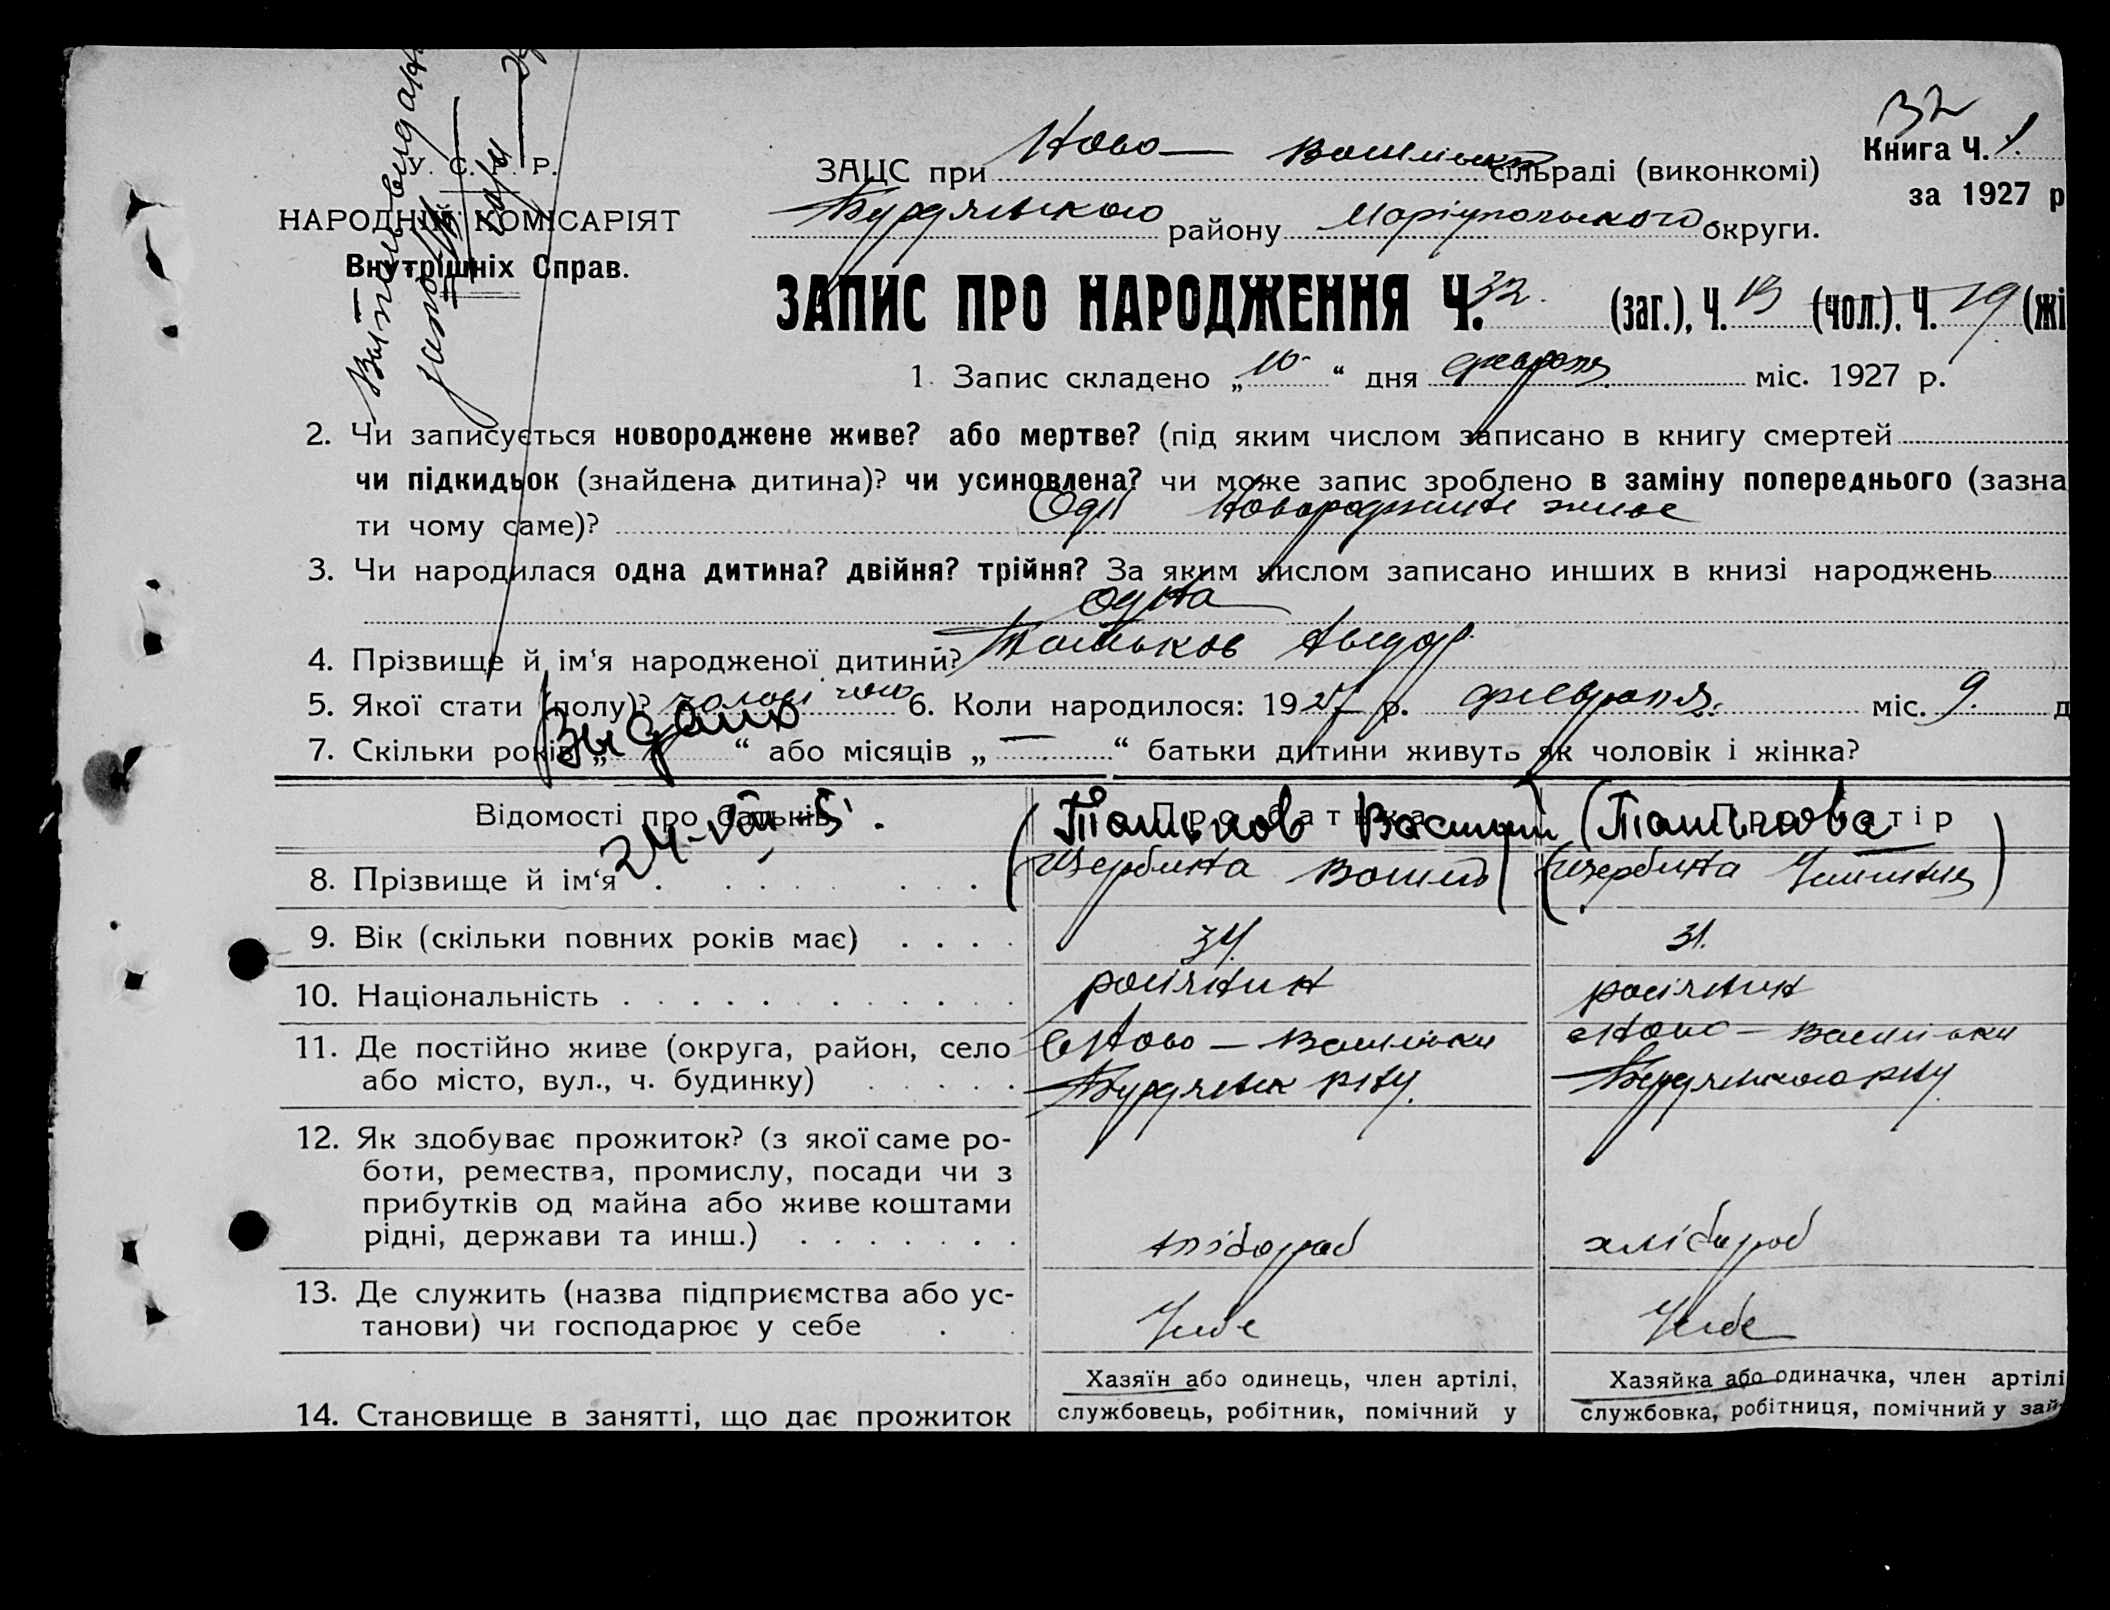 32
Книга Ч. 1.
за 1927 р
У. С. Р. Р.
НАРОДНІЙ КОМІСАРІЯТ
Внутрішніх Справ.
ЗАЦС при Ново — сільраді (виконкомі)
Бурдянского району Маріупольского округи.
ЗАПИС ПРО НАРОДЖЕННЯ Ч. 32. (заг.), Ч. 13 (чол.). Ч. 19 (жі
1. Запис складено „ 10 “ дня февраля міс. 1927 р.
2. Чи записується новороджене живе? або мертве? (під яким числом записано в книгу смертей
чи підкидьок (знайдена дитина)? чи усиновлена? чи може запис зроблено в заміну попереднього (зазна
ти чому саме)? живе
3. Чи народилася одна дитина? двійня? трійня? За яким числом записано инших в книзі народжень
одна
4. Прізвище й ім‘я народженої дитини?
5. Якої стати (полу)? 6. Коли народилося: 1927 р. февраля міс. 9. д
7. Скільки років „ “ або місяців „ — “ батьки дитини живуть як чоловік і жінка?
Выдано
24-VIII-
Відомості про батьків Про батька Про матір
8. Прізвище й ім‘я (Щербина (Щербина
9. Вік (скільки повних років має) 34. 31.
10. Національність росіянин росіянин
11. Де постійно живе (округа, район, село Ново — Васильівки — Васильівки
або місто, вул., ч. будинку) Бурдянск р-ну. Бурдянского р-ну.
12. Як здобуває прожиток? (з якої саме ро-
боти, ремества, промислу, посади чи з
прибутків од майна або живе коштами
рідні, держави та инш.) хлібороб хлібороб
13. Де служить (назва підприємства або ус-
танови) чи господарює у себе У себе У себе
14. Становище в занятті, що дає прожиток
Хазяїн або одинець, член артілі,
службовець, робітник, помічний у
Хазяйка або одиначка, член артілі
службовка, робітниця, помічний у зай